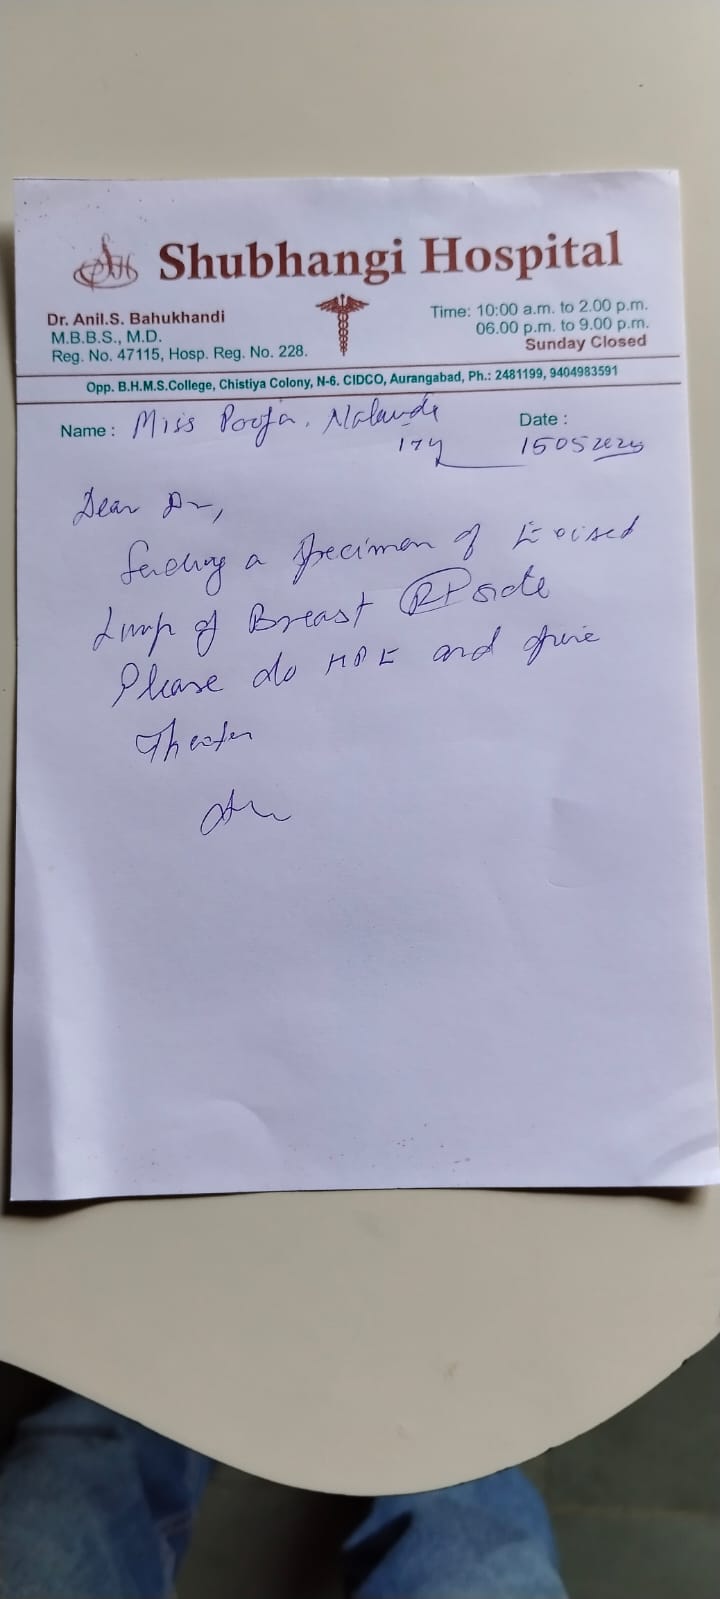 Shubhangi Hospital
Dr. Anil.S. Bahukhandi
M.B.B.S., M.D.
Reg. No. 47115, Hosp. Reg. No. 228.
Time: 10:00 a.m. to 2.00 p.m.
06.00 p.m. to 9.00 p.m.
Sunday Closed
Opp. B.H.M.S.College, Chistiya Colony, N-6. CIDCO, Aurangabad, Ph.: 2481199, 9404983591
Name : Miss Pooja.
17y
Date :
Dear Dr,
Sending a Specimen of Excised
Lump of Breast Rt side
Please do HPE and give